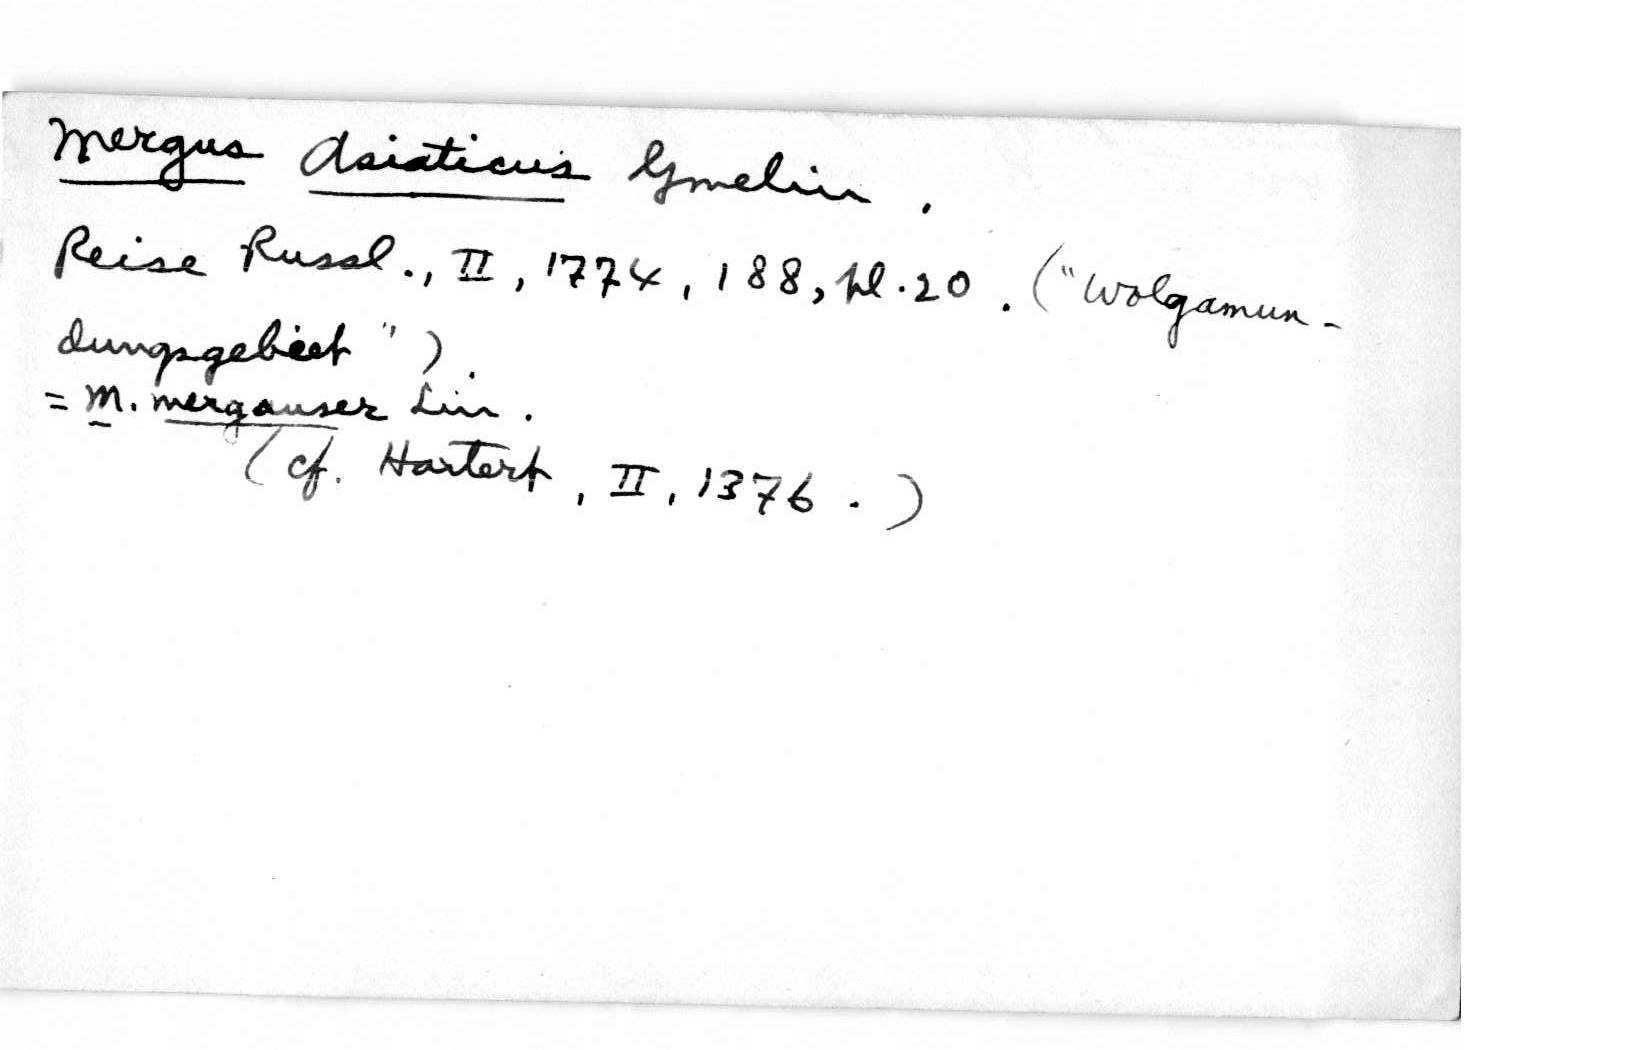 Mergus Asiaticus Gmelin.
Reise Russl., II, 1774, 188, pl. 20. ("Wolgamun-
dungsgebiet").
= M. merganser Lin.
(cf. Hartert, II, 1376.)